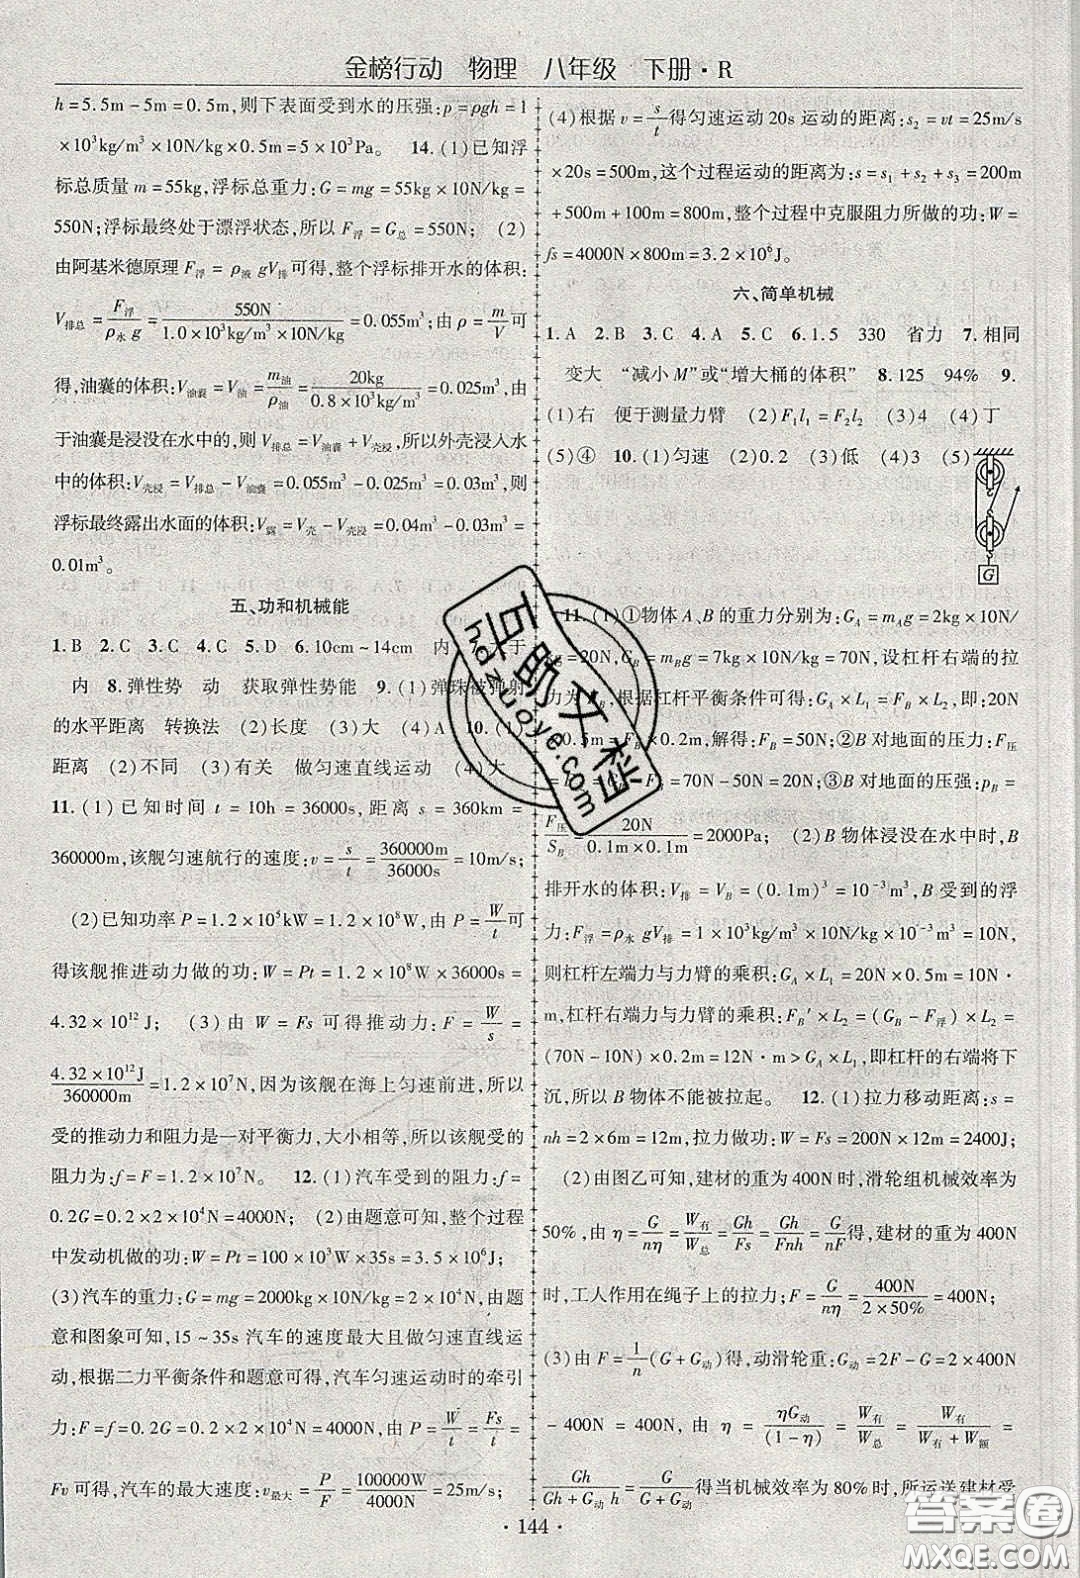 金榜行动 物理 八年级 下册·R
h=5.5m-5m=0.5m,则下表面受到水的压强:p=ρgh=1
×10³kg/m³×10N/kg×0.5m=5×10³Pa。 14.(1)已知浮
标总质量m=55kg,浮标总重力:G=mg=55kg×10N/kg=
550N;浮标最终处于漂浮状态,所以F浮=G总=550N; (2)
由阿基米德原理F浮=ρ液gV排可得,整个浮标排开水的体积:
V排总=F浮/ρ水g=550N/(1.0×10³kg/m³×10N/kg)=0.055m³;由ρ=m/V可
得,油囊的体积:V油囊=V油=m油/ρ油=20kg/(0.8×10³kg/m³)=0.025m³;由
于油囊是浸没在水中的,则V排总=V油囊+V壳浸,所以外壳浸入水
中的体积:V壳浸=V排总-V油囊=0.055m³-0.025m³=0.03m³,则
浮标最终露出水面的体积:V露=V壳-V壳浸=0.04m³-0.03m³=
0.01m³。
五、功和机械能
1.B 2.C 3.C 4.C 5.D 6.10cm~14cm 内 7.大于
内 8.弹性势 动 获取弹性势能 9.(1)弹珠被弹射
的水平距离 转换法 (2)长度 (3)大 (4)A 10.(1)
距离 (2)不同 (3)有关 做匀速直线运动 (4)大
11.(1)已知时间t=10h=36000s,距离s=360km=
360000m,该舰匀速航行的速度:v=s/t=360000m/36000s=10m/s;
(2)已知功率P=1.2×10⁵kW=1.2×10⁸W,由P=W/t可
得该舰推进动力做的功:W=Pt=1.2×10⁸W×36000s=
4.32×10¹²J; (3)由W=Fs可得推动力:F=W/s=
4.32×10¹²J/360000m=1.2×10⁷N,因为该舰在海上匀速前进,所以
受的推动力和阻力是一对平衡力,大小相等,所以该舰受的
阻力为:f=F=1.2×10⁷N。 12.(1)汽车受到的阻力:f=
0.2G=0.2×2×10⁴N=4000N; (2)由题意可知,整个过程
中发动机做的功:W=Pt=100×10³W×35s=3.5×10⁶J;
(3)汽车的重力:G=mg=2000kg×10N/kg=2×10⁴N,由题
意和图象可知,15~35s汽车的速度最大且做匀速直线运
动,根据二力平衡条件和题意可得,汽车匀速运动时的牵引
力:F=f=0.2G=0.2×2×10⁴N=4000N,由P=W/t=Fs/t=
Fv可得,汽车的最大速度:v最大=P/F=100000W/4000N=25m/s;
(4)根据v=s/t得匀速运动20s运动的距离:s₂=vt=25m/s
×20s=500m,这个过程运动的距离为:s=s₁+s₂+s₃=200m
+500m+100m=800m,整个过程中克服阻力所做的功:W=
fs=4000N×800m=3.2×10⁶J。
六、简单机械
1.A 2.B 3.C 4.A 5.C 6.1.5 330 省力 7.相同
变大 “减小M”或“增大桶的体积” 8.125 94% 9.
(1)右 便于测量力臂 (2)F₁l₁=F₂l₂ (3)4 (4)丁
(5)④ 10.(1)匀速 (2)0.2 (3)低 (4)3 (5)
G
11.(1)①物体A、B的重力分别为:GA=mAg=2kg×10N/
kg=20N,GB=mBg=7kg×10N/kg=70N,设杠杆右端的拉
力为FB,根据杠杆平衡条件可得:GA×L₁=FB×L₂,即:20N
×0.5m=FB×0.2m,解得:FB=50N;②B对地面的压力:F压
=GB-FB=70N-50N=20N;③B对地面的压强:pB=
F压/SB=20N/(0.1m×0.1m)=2000Pa; (2)B物体浸没在水中时,B
排开水的体积:V排=VB=(0.1m)³=10⁻³m³,B受到的浮
力:F浮=ρ水gV排=1×10³kg/m³×10N/kg×10⁻³m³=10N,
则杠杆左端力与力臂的乘积:GA×L₁=20N×0.5m=10N·
m,杠杆右端力与力臂的乘积:FB′×L₂=(GB-F浮)×L₂=
(70N-10N)×0.2m=12N·m>GA×L₁,即杠杆的右端将下
沉,所以B物体不能被拉起。 12.(1)拉力移动距离:s=
nh=2×6m=12m,拉力做功:W=Fs=200N×12m=2400J;
(2)由图乙可知,建材的重为400N时,滑轮组机械效率为
50%,由η=G/nη=W有/W总=Gh/Fs=Gh/Fnh=G/nF得,建材的重为400N
时,工人作用在绳子上的拉力:F=G/nη=400N/(2×50%)=400N;
(3)由F=1/n(G+G动)得,动滑轮重:G动=2F-G=2×400N
-400N=400N,由η=ηG动/(1-η)=W有/W总=W有/(W有+W额)=
Gh/(Gh+G动h)=G/(G+G动)得当机械效率为80%时,所运送建材受
·144·
互助文档
hdzuoye.com
答案圈
MXQE.COM